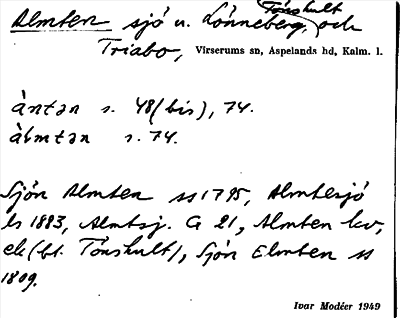 Almten sjö u. Lönneberg, Tönshult och
Triabo, Virserums sn, Aspelands hd, Kalm. l.
àntən s. 48 (bis), 74.
àlmtən s. 74.
Sjön Almten ss 1795, Almtesjö
ls 1883, Almtsj. G 21, Almten kv,
ek (bl. Tönshult), Sjön Elmten ss
1809.
Ivar Modéer 1949